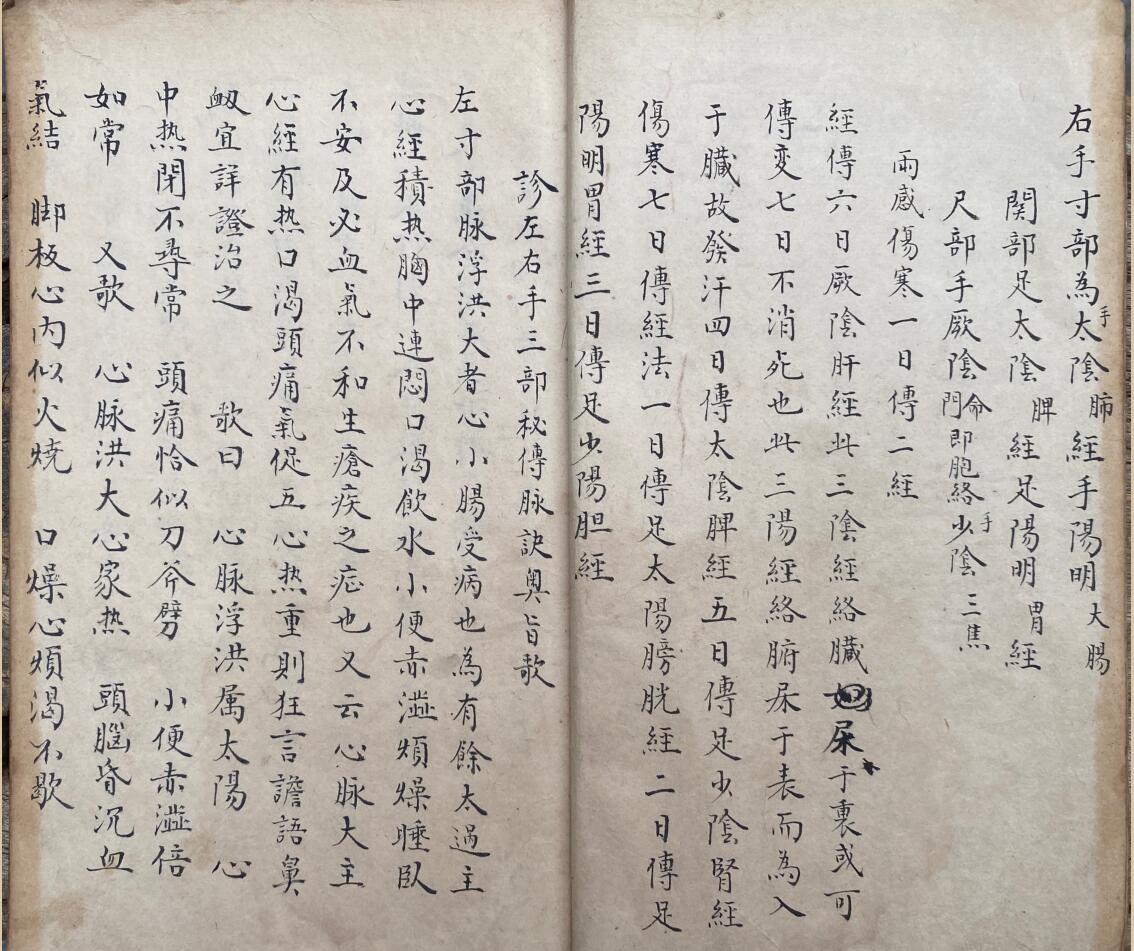 右手寸部為手太陰肺經手陽明大腸
関部足太陰脾經足陽明胃經
尺部手厥陰命門即胞絡手少陰三焦
兩感傷寒一日傳二經
經傳六日厥陰肝經此三陰經絡臓屎于裏或可
傳变七日不消死也此三陽經絡腑屎于表而為入
于臓故發汗四日傳太陰脾經五日傳足少陰腎經
傷寒七日傳經法一日傳足太陽膀胱經二日傳足
陽明胃經三日傳足少陽胆經
診左右手三部秘傳脉訣奥旨歌
左寸部脉浮洪大者心小腸受病也為有餘太過主
心經積热胸中連悶口渴飲水小便赤澁煩燥睡臥
不安及必血氣不和生瘡疾之症也又云心脉大主
心經有热口渴頭痛氣促五心热重則狂言譫語鼻
衂宜詳證治之 歌曰 心脉浮洪属太陽 心
中热閉不尋常 頭痛恰似刀斧劈 小便赤澁倍
如常 又歌 心脉洪大心家热 頭腦昏沉血
氣結 脚板心内似火燒 口燥心煩渴不歇